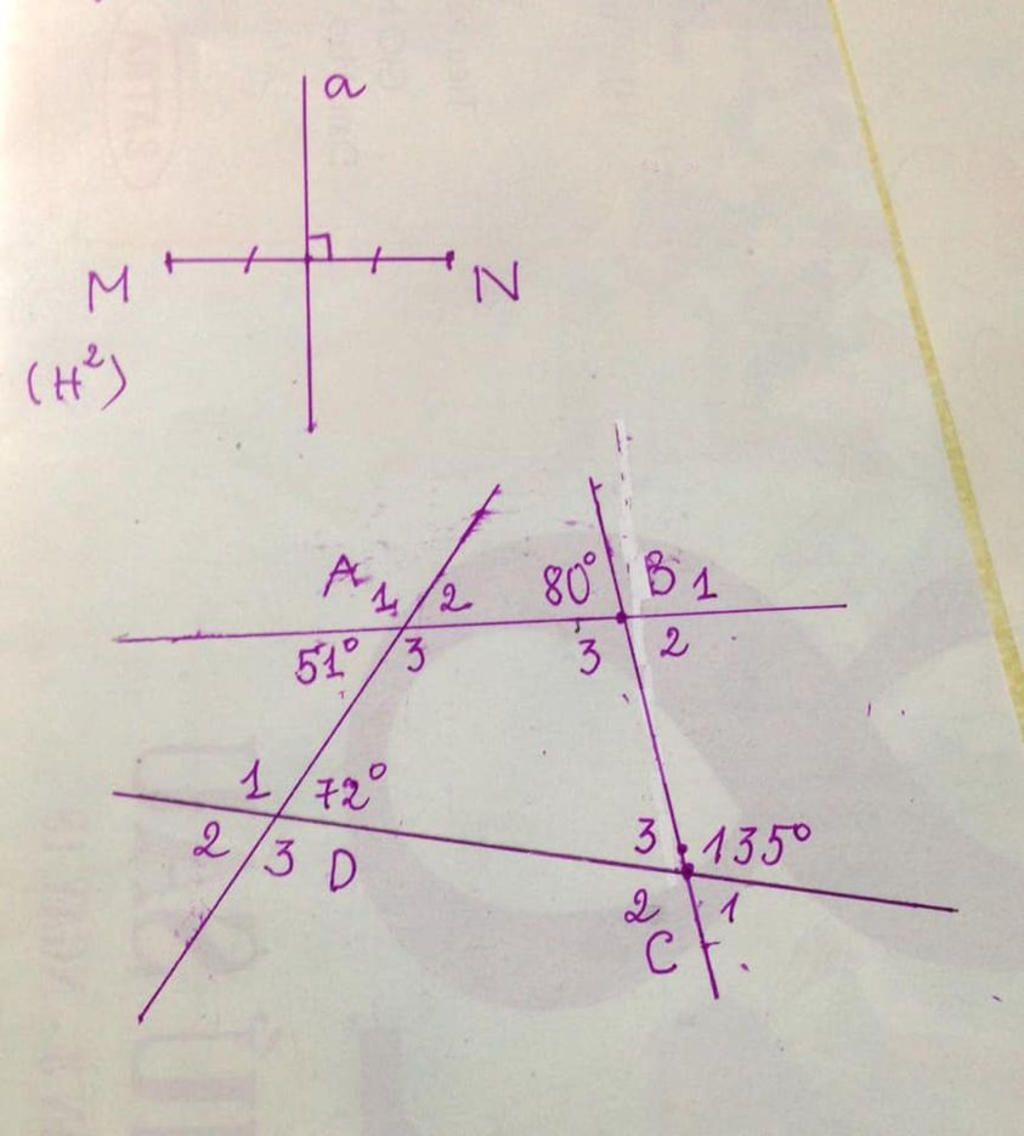 a
M N
(H²)
A 1 2 80° B 1
51° 3 3 2
1 72°
2 3 D
3 135°
2 1
C